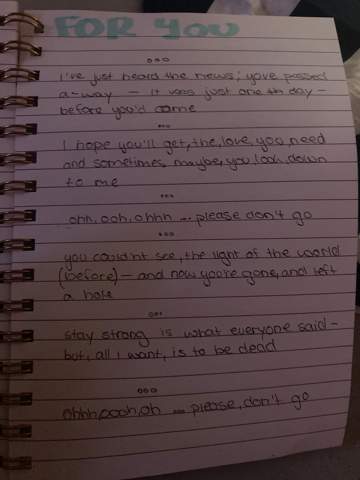 FOR YOU
ooo
I've just heard the news; you've passed
a-way - it was just one th day -
before you'd come
...
I hope you'll get, the, love, you need
and sometimes, maybe, you look, down
to me
...
ohh, ooh, ohhh ... please don't go
...
you couldn't see, the light of the world
(before) - and now you're gone, and left
a hole
ooo
stay strong is what everyone said -
but, all I want, is to be dead
ooo
ohhh, oooh, oh ... please, don't go